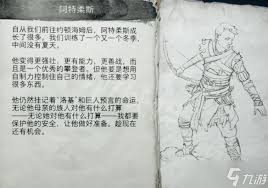 阿特柔斯
自从我们前往约顿海姆后，阿特柔斯成
长了很多。我们训练了一个又一个冬季，
中间没有夏天。
他变得更强壮、更有能力、更善战，而
且是一个优秀的攀登者。但他要是想用
自制力控制住自己的情绪，他还要学习
很多东西。
他仍然挂记着“洛基”和巨人预言的命运，
无论他母亲的族人对他有什么打算——
——无论她对他有什么打算——我都要
保护他的安全，让他做好准备。趁现在
还有机会。
九游